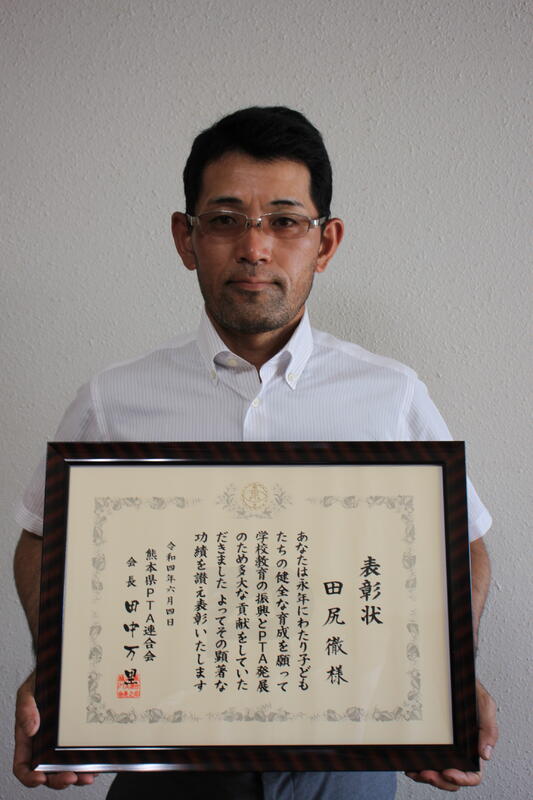 表彰状
田尻徹様
あなたは永年にわたり子ども
たちの健全な育成を願って
学校教育の振興とPTA発展
のため多大な貢献をしていた
だきました よってその顕著な
功績を讃え表彰いたします
令和四年六月四日
熊本県PTA連合会
会長 田中万里